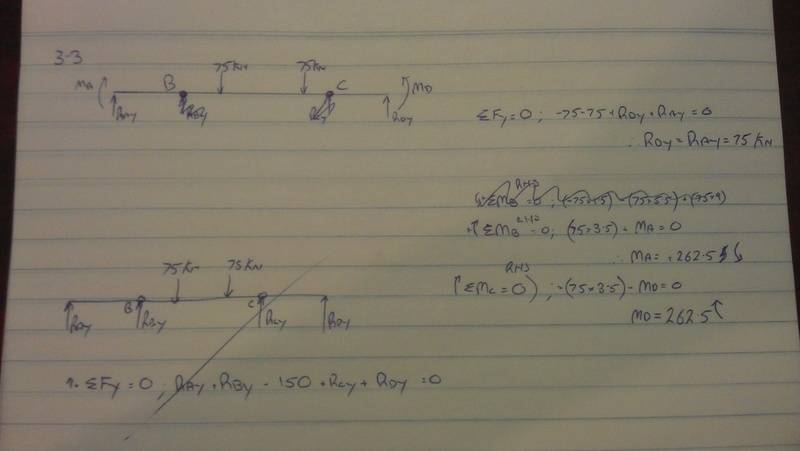 3-3
75KN 75KN
MA B C MD
RAY RBY RCY RDY
ΣFy=0; -75-75+RDY+RAY=0
∴ RDY=RAY=75KN
RHS
ΣMB=0;
LHS
ΣMB=0; (75×3.5)+MA=0
∴ MA=+262.5
RHS
ΣMC=0); -(75×3.5)-MD=0
MD=262.5
75KN 75KN
B C
RAY RBY RCY RDY
↑+ ΣFy=0; RAY+RBY-150+RCY+RDY=0